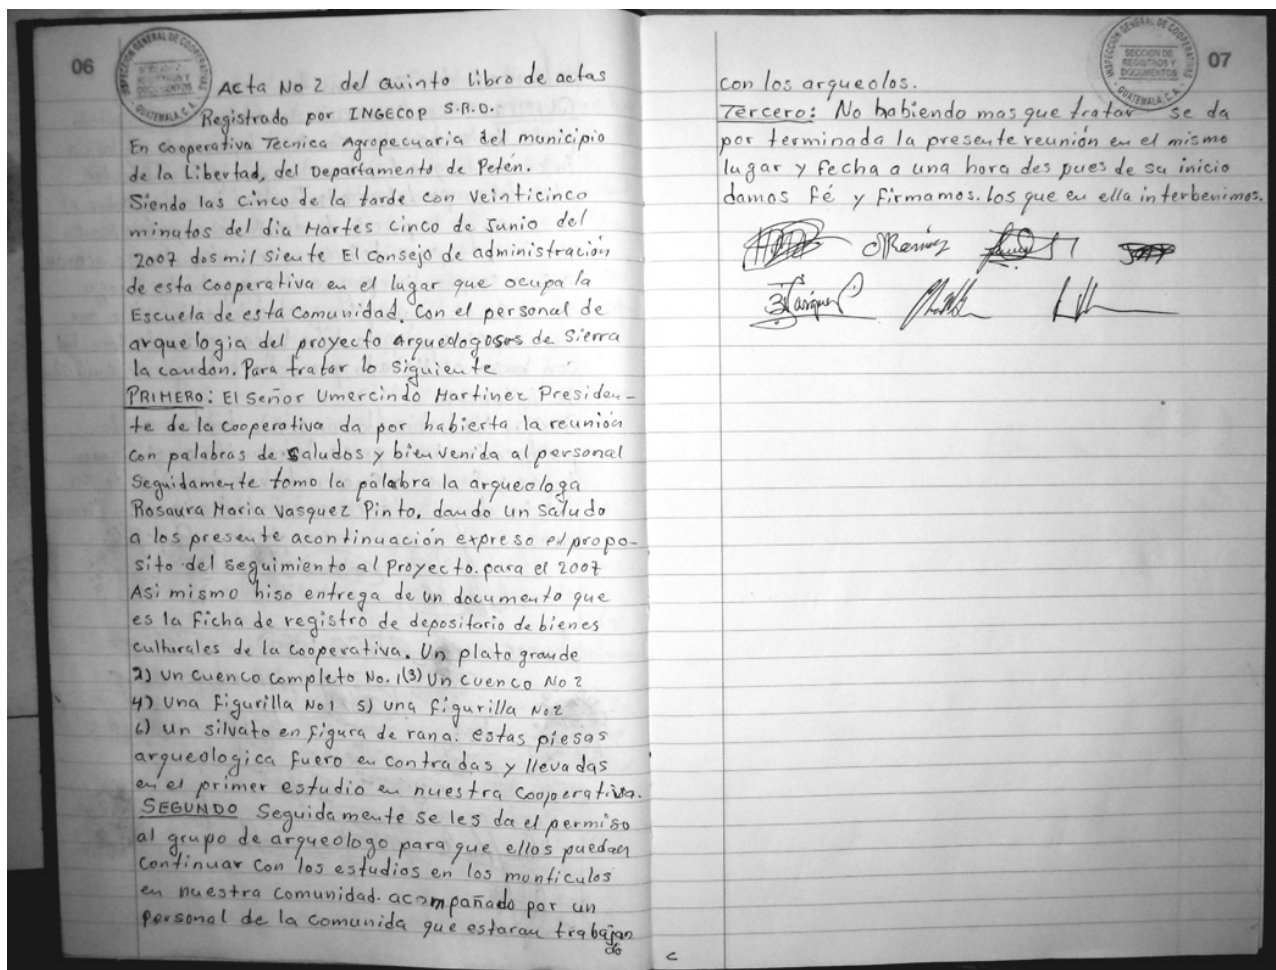 06
INSPECCION GENERAL DE COOPERATIVAS
GUATEMALA, C.A.
Acta No 2 del Quinto libro de actas
Registrado por INGECOP S.R.D.
En cooperativa Tecnica Agropecuaria del municipio
de la Libertad, del Departamento de Petén.
Siendo las cinco de la tarde con veinticinco
minutos del dia Martes cinco de Junio del
2007 dos mil siente El consejo de administración
de esta cooperativa en el lugar que ocupa la
Escuela de esta comunidad. Con el personal de
arquelogia del proyecto arqueologosos de Sierra
la candon. Para tratar lo siguiente
PRIMERO: El señor Umercindo Martinez Presiden-
te de la cooperativa da por habierta la reunión
con palabras de saludos y bienvenida al personal
Seguidamente tomo la palabra la arqueologa
Rosaura Maria Vasquez Pinto. dando un saludo
a los presente acontinuación expreso el propo-
sito del seguimiento al Proyecto. para el 2007
Asi mismo hiso entrega de un documento que
es la ficha de registro de depositario de bienes
culturales de la cooperativa. Un plato grande
2) un cuenco completo No. 1(3) un cuenco No 2
4) una figurilla No1 5) una figurilla No2
6) un silvato en figura de rana. estas piesas
arqueologica fuero encontradas y llevadas
en el primer estudio en nuestra cooperativa.
SEGUNDO Seguidamente se les da el permiso
al grupo de arqueologo para que ellos puedan
continuar con los estudios en los monticulos
en nuestra comunidad. acompañado por un
personal de la comunida que estaran trabajan
do
INSPECCION GENERAL DE COOPERATIVAS
SECCION DE
REGISTROS Y
DOCUMENTOS
GUATEMALA, C.A.
07
con los arqueolos.
Tercero: No habiendo mas que tratar se da
por terminada la presente reunión en el mismo
lugar y fecha a una hora des pues de su inicio
damos fé y firmamos. los que en ella interbenimos.